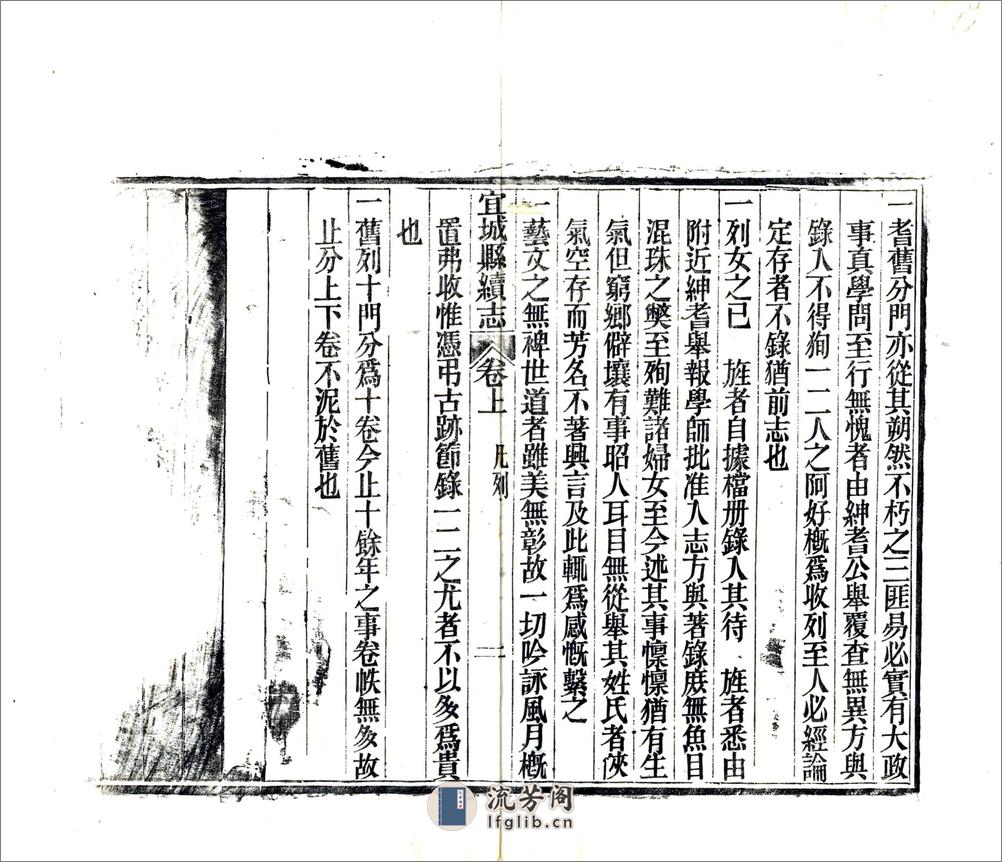 一耆舊分門亦從其朔然不朽之三匪易必實有大政
事真學問至行無愧者由紳耆公舉覆查無異方與
錄入不得徇一二人之阿好概爲收列至人必經論
定存者不錄猶前志也
一列女之已 旌者自據檔册錄入其待 旌者悉由
附近紳耆舉報學師批准入志方與著錄庶無魚目
混珠之弊至殉難諸婦女至今述其事懍懍猶有生
氣但窮鄉僻壤有事昭人耳目無從舉其姓氏者俠
氣空存而芳名不著興言及此輒爲感慨繫之
一藝文之無裨世道者雖美無彰故一切吟詠風月概
宜城縣續志 卷上 凡列 二
置弗收惟憑弔古跡節錄一二之尤者不以多爲貴
也
一舊列十門分爲十卷今止十餘年之事卷帙無多故
止分上下卷不泥於舊也
流芳阁
lfglib.cn